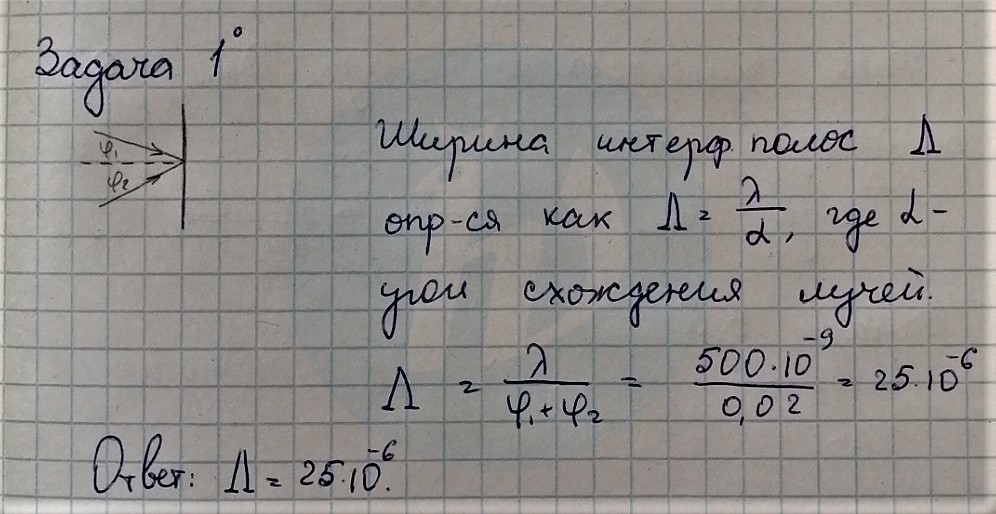 Задача 1°
φ₁
φ₂
Ширина интерф. полос Λ
опр-ся как Λ = λ/α, где α -
угол схождения лучей.
Λ = λ/(φ₁ + φ₂) = 500·10⁻⁹/0,02 = 25·10⁻⁶
Ответ: Λ = 25·10⁻⁶.